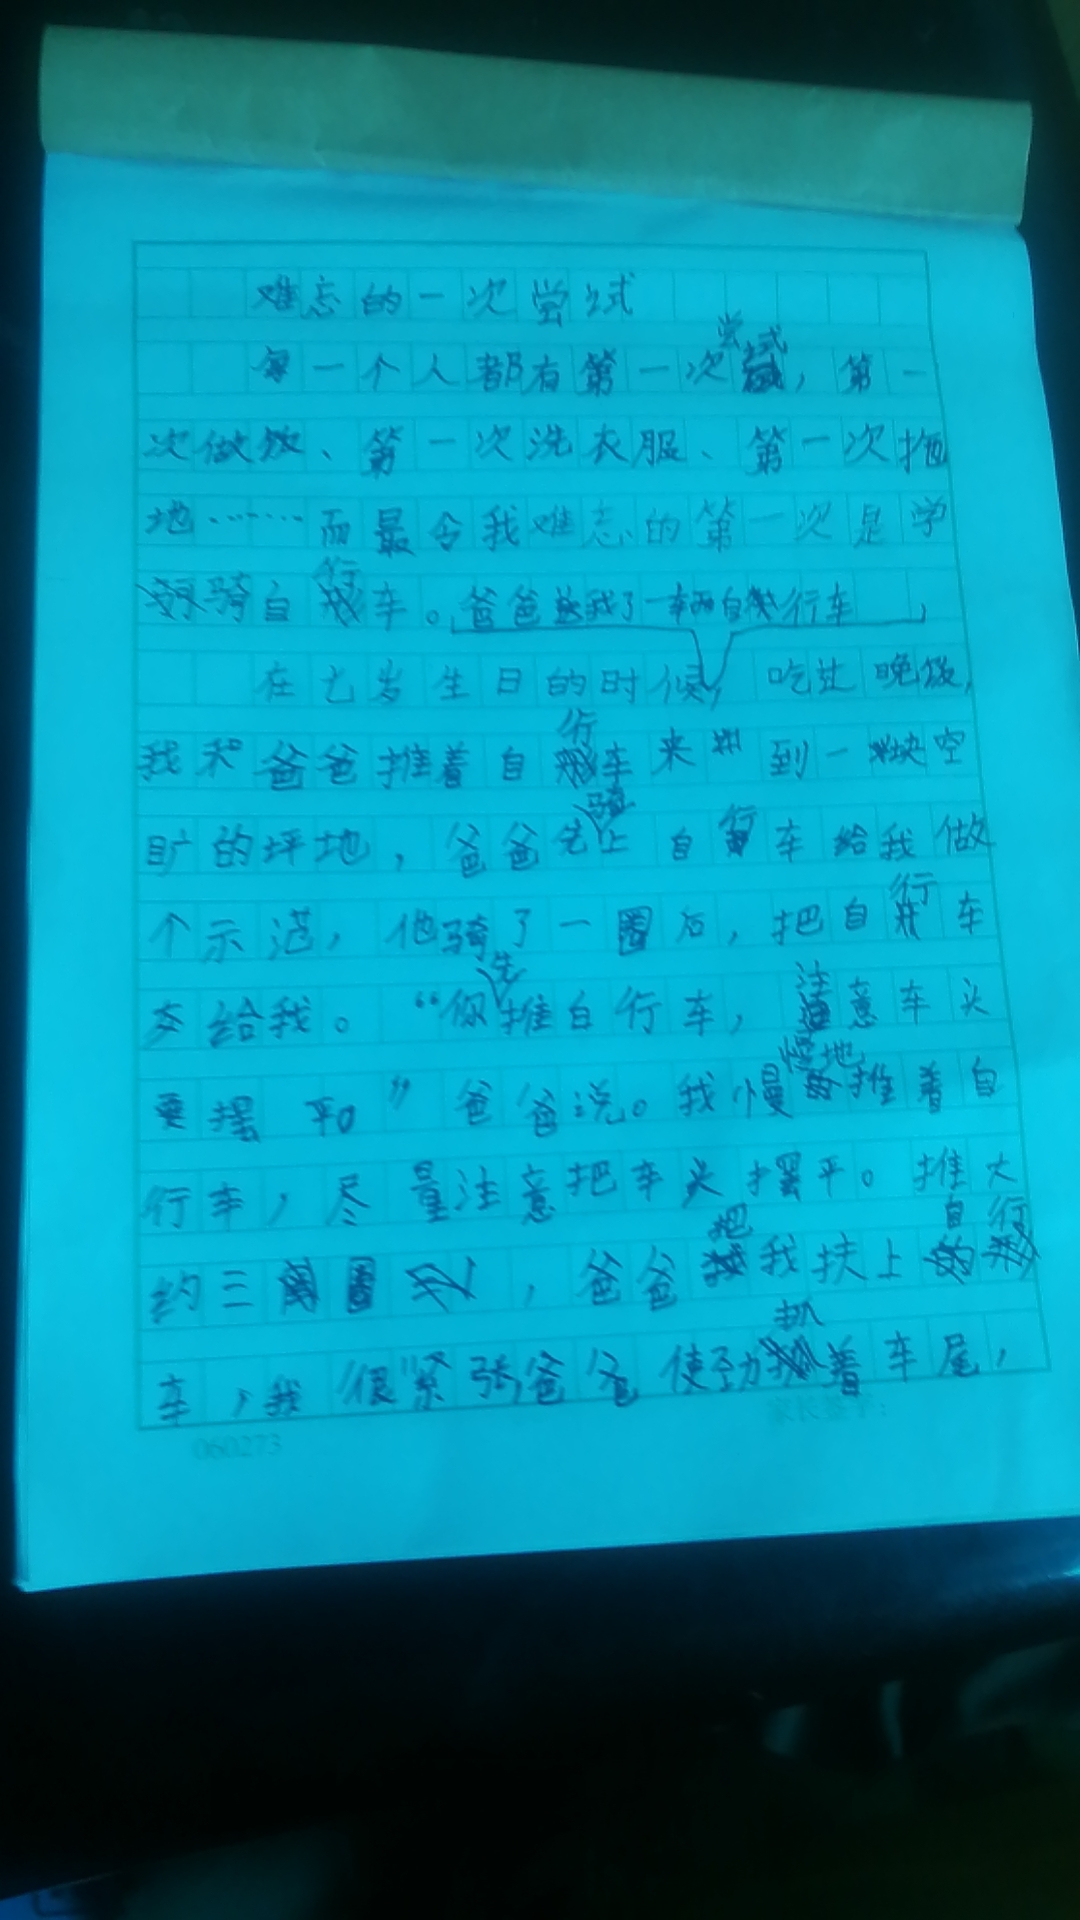 难忘的一次尝试
每一个人都有第一次尝试，第一
次做饭、第一次洗衣服、第一次拖
地……而最令我难忘的第一次是学
骑自行车。爸爸送我了一辆自行车，
在七岁生日的时候，吃过晚饭，
我和爸爸推着自行车来到一块空
旷的坪地，爸爸先骑上自行车给我做
个示范，他骑了一圈后，把自行车
交给我。“你先推自行车，注意车头
要摆平”爸爸说。我慢慢地推着自
行车，尽量注意把车头摆平。推大
约三圈，爸爸把我扶上自行
车，我很紧张，爸爸使劲扒着车尾，
060273
家长签字：